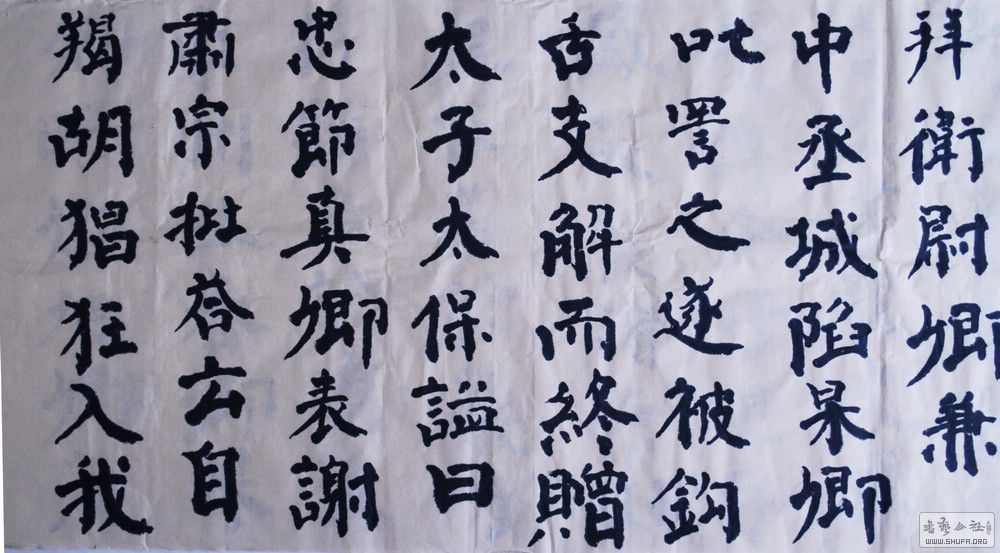 拜衛尉卿兼
中丞城陷杲卿
叱詈之遂被鈎
舌支解而終贈
太子太保謚曰
忠節真卿表謝
肅宗批荅云自
羯胡猖狂入我
書藝公社
WWW.SHUFA.ORG